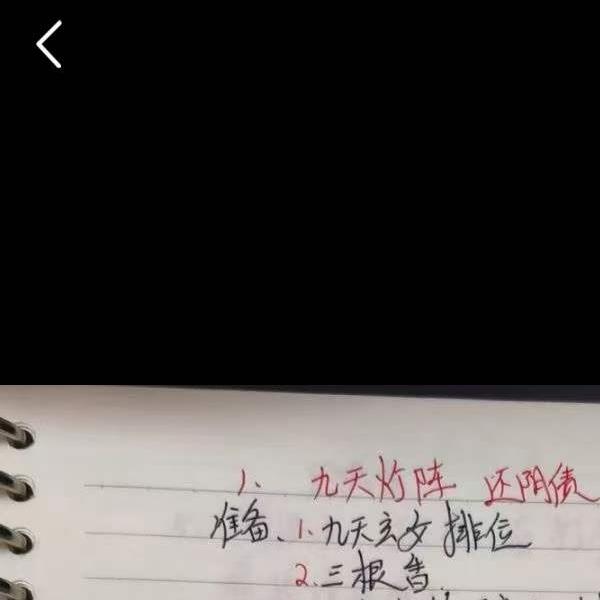 1、 九天灯阵 还阴债
准备、1.九天玄女排位
2.三根香